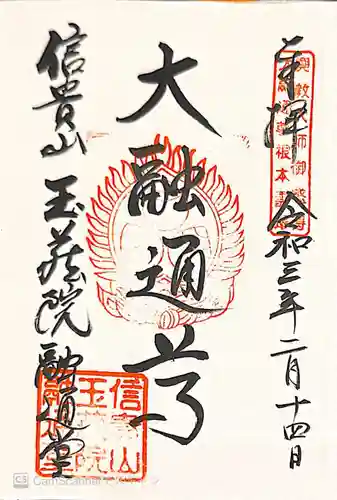 奉拝 令和三年二月十四日
大融通尊
信貴山 玉蔵院 融通堂
信貴山
玉蔵院
CS CamScanner